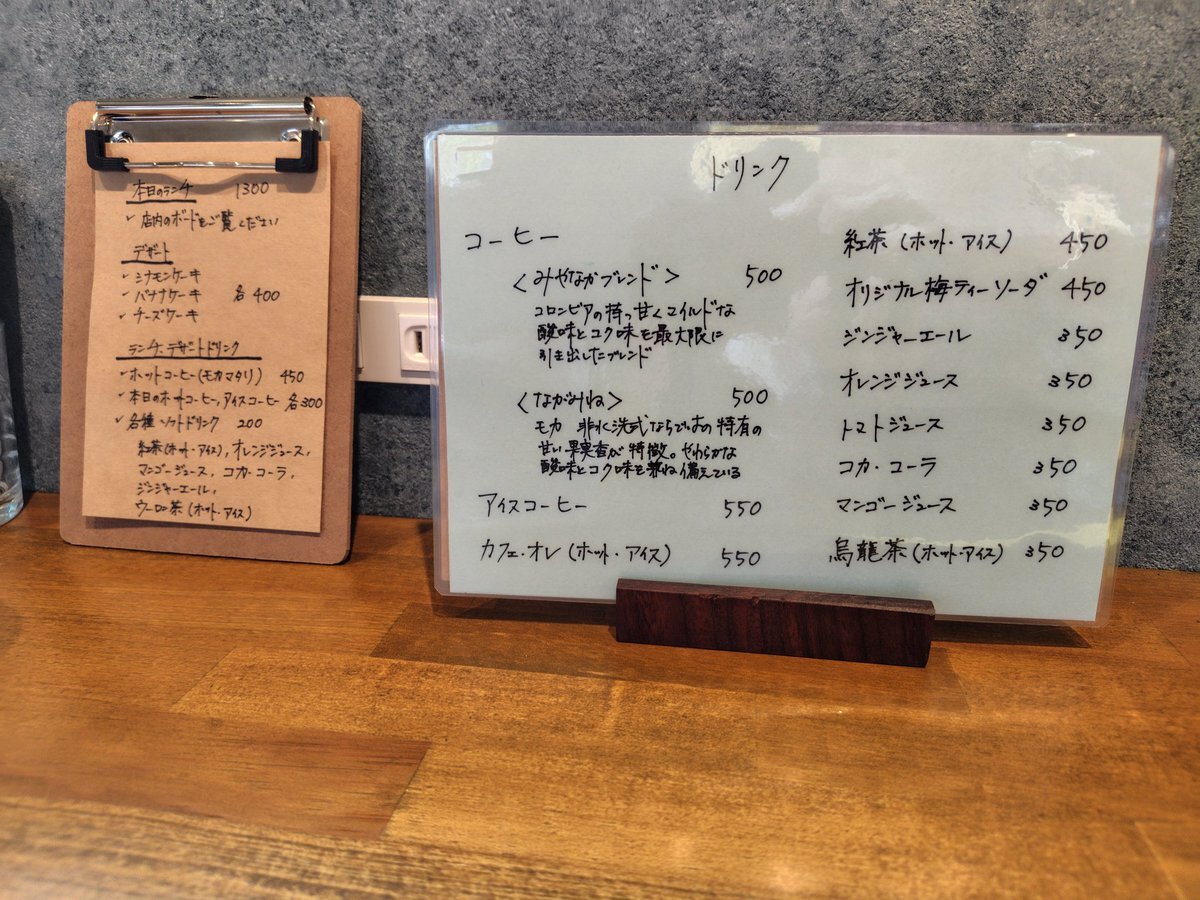 本日のランチ 1300
✓ 店内のボードをご覧ください
デザート
✓ シナモンケーキ
✓ バナナケーキ 各400
✓ チーズケーキ
ランチ・デザートドリンク
✓ ホットコーヒー(モカマタリ) 450
✓ 本日のホットコーヒー,アイスコーヒー 各300
✓ 各種ソフトドリンク 200
紅茶(ホット・アイス),オレンジジュース,
マンゴージュース,コカ・コーラ,
ジンジャーエール,
ウーロン茶(ホット・アイス)
ドリンク
コーヒー
<みやなかブレンド> 500
コロンビアの持つ甘くマイルドな
酸味とコク味を最大限に
引き出したブレンド
<ながみね> 500
モカ 非水洗式ならではの特有の
甘い果実香が特徴。やわらかな
酸味とコク味を兼ね備えている
アイスコーヒー 550
カフェ・オレ(ホット・アイス) 550
紅茶(ホット・アイス) 450
オリジナル梅ティーソーダ 450
ジンジャーエール 350
オレンジジュース 350
トマトジュース 350
コカ・コーラ 350
マンゴージュース 350
烏龍茶(ホット・アイス) 350